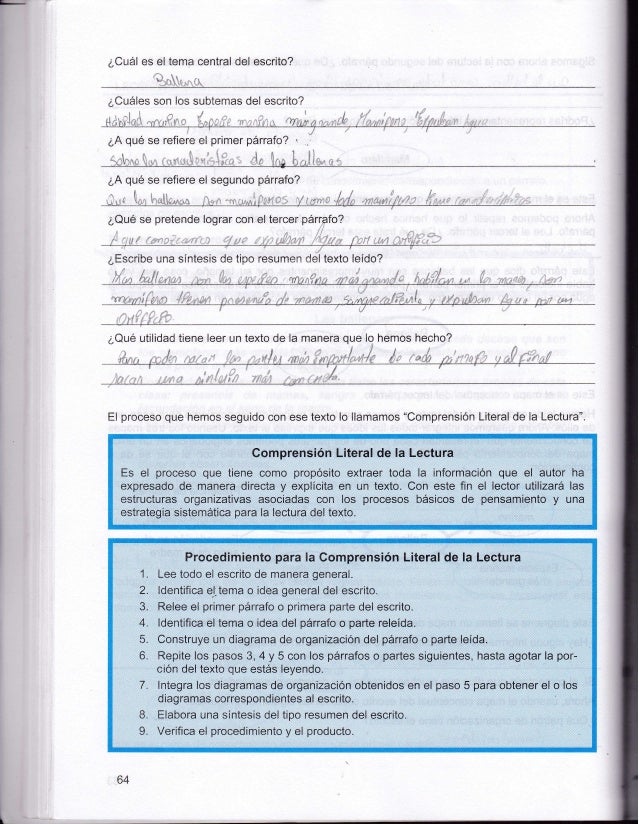 ¿Cuál es el tema central del escrito?
Ballena
¿Cuáles son los subtemas del escrito?
Hábitad marino, Especie marina más grande, Mamífero, Expulsan Agua
¿A qué se refiere el primer párrafo?
Sobre las características de las ballenas
¿A qué se refiere el segundo párrafo?
Que las ballenas son mamíferos y como todo mamífero tiene características
¿Qué se pretende lograr con el tercer párrafo?
A que conozcamos que expulsan Agua por un orificio
¿Escribe una síntesis de tipo resumen del texto leído?
las ballenas son la especie marina más grande, habitan en los mares, son
mamífero tienen presencia de mamas, Sangre caliente, y expulsan Agua por un
Orificio
¿Qué utilidad tiene leer un texto de la manera que lo hemos hecho?
Para poder sacar las partes más importante de cada párrafo y al final
sacar una síntesis más concreta.
El proceso que hemos seguido con ese texto lo llamamos “Comprensión Literal de la Lectura”.
Comprensión Literal de la Lectura
Es el proceso que tiene como propósito extraer toda la información que el autor ha
expresado de manera directa y explícita en un texto. Con este fin el lector utilizará las
estructuras organizativas asociadas con los procesos básicos de pensamiento y una
estrategia sistemática para la lectura del texto.
Procedimiento para la Comprensión Literal de la Lectura
1. Lee todo el escrito de manera general.
2. Identifica el tema o idea general del escrito.
3. Relee el primer párrafo o primera parte del escrito.
4. Identifica el tema o idea del párrafo o parte releída.
5. Construye un diagrama de organización del párrafo o parte leída.
6. Repite los pasos 3, 4 y 5 con los párrafos o partes siguientes, hasta agotar la por-
ción del texto que estás leyendo.
7. Integra los diagramas de organización obtenidos en el paso 5 para obtener el o los
diagramas correspondientes al escrito.
8. Elabora una síntesis del tipo resumen del escrito.
9. Verifica el procedimiento y el producto.
64